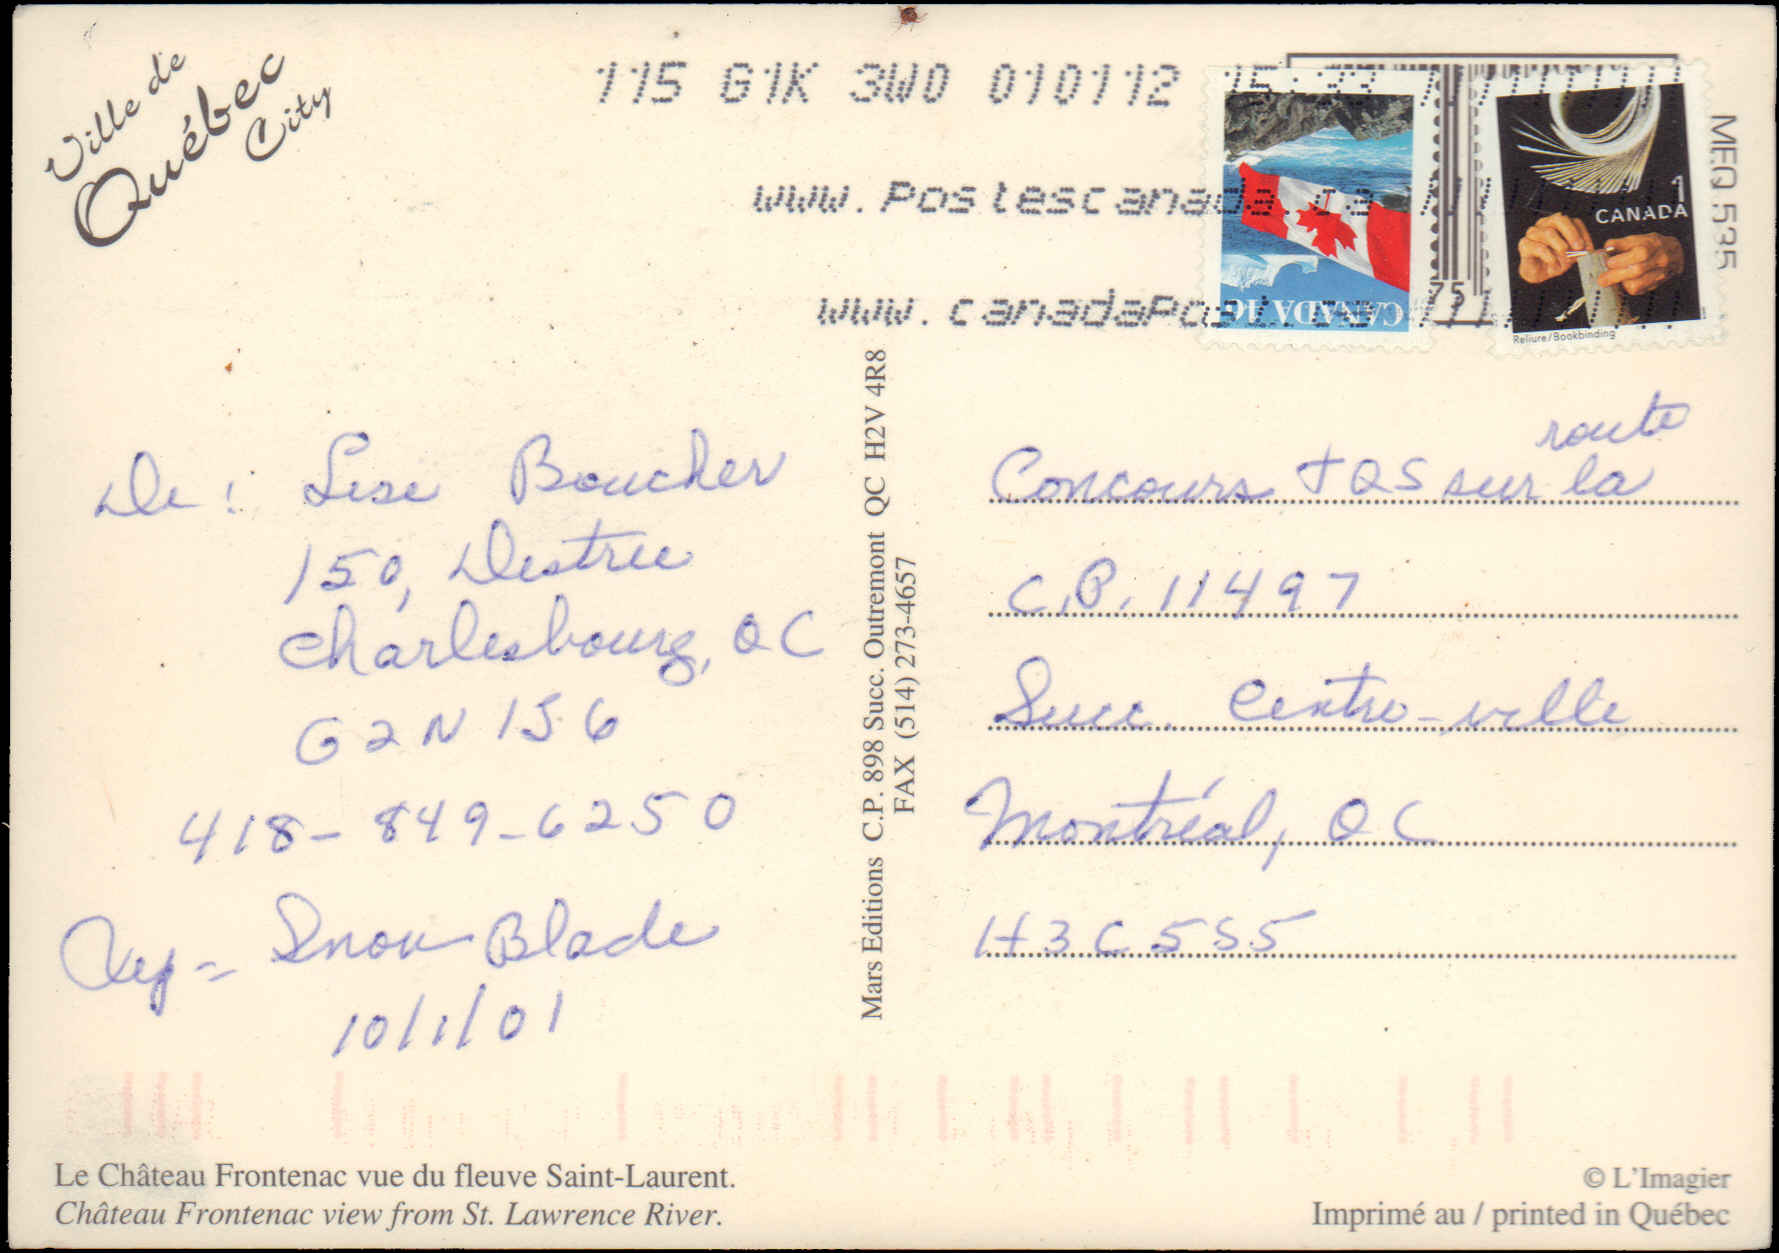 Ville de
Québec
City
115 G1K 3W0 010112 15:33
www.Postescanada.ca
www.canadaPost.ca
CANADA 46
75
1
CANADA
Reliure/Bookbinding
MEQ.535
De : Lise Boucher
150, Destree
Charlesbourg, QC
G2N 1J6
418-849-6250
Snow Blade
10/1/01
Mars Editions C.P. 898 Succ. Outremont QC H2V 4R8
FAX (514) 273-4657
route
Concours TQS sur la
C.P. 11497
Succ. Centre-ville
Montréal, QC
H3C 5S5
Le Château Frontenac vue du fleuve Saint-Laurent.
Château Frontenac view from St. Lawrence River.
© L'Imagier
Imprimé au / printed in Québec